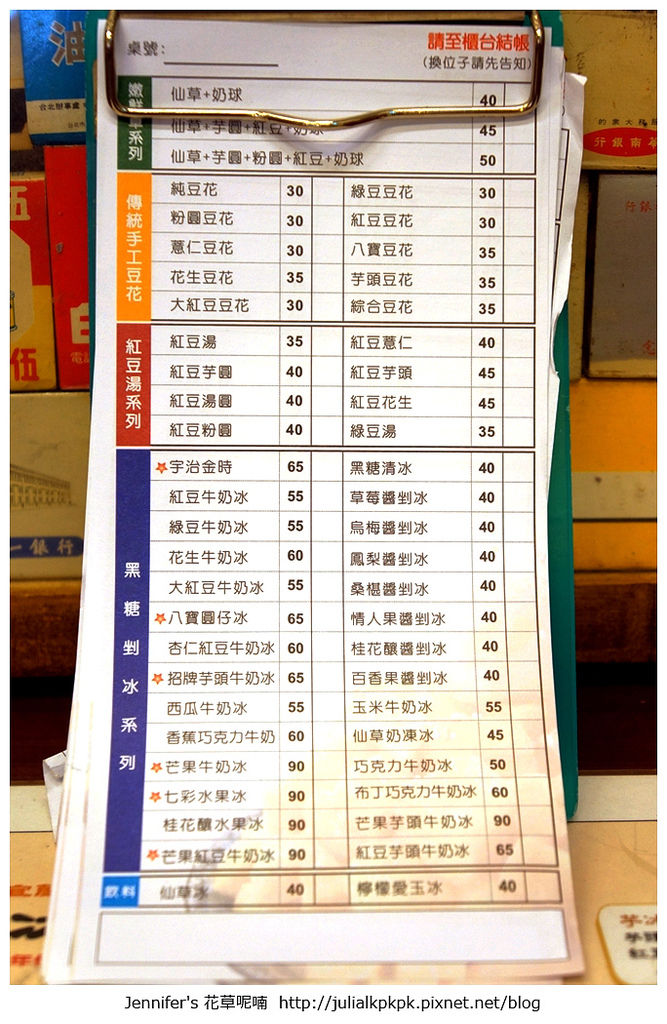 桌號：
請至櫃台結帳
(換位子請先告知)
仙草+奶球 40
仙草+芋圓+紅豆+奶球 45
仙草+芋圓+粉圓+紅豆+奶球 50
傳統手工豆花
純豆花 30 綠豆豆花 30
粉圓豆花 30 紅豆豆花 30
薏仁豆花 30 八寶豆花 35
花生豆花 35 芋頭豆花 35
大紅豆豆花 30 綜合豆花 35
紅豆湯系列
紅豆湯 35 紅豆薏仁 40
紅豆芋圓 40 紅豆芋頭 45
紅豆湯圓 40 紅豆花生 45
紅豆粉圓 40 綠豆湯 35
黑糖剉冰系列
宇治金時 65 黑糖清冰 40
紅豆牛奶冰 55 草莓醬剉冰 40
綠豆牛奶冰 55 烏梅醬剉冰 40
花生牛奶冰 60 鳳梨醬剉冰 40
大紅豆牛奶冰 55 桑椹醬剉冰 40
八寶圓仔冰 65 情人果醬剉冰 40
杏仁紅豆牛奶冰 60 桂花釀醬剉冰 40
招牌芋頭牛奶冰 65 百香果醬剉冰 40
西瓜牛奶冰 55 玉米牛奶冰 55
香蕉巧克力牛奶 60 仙草奶凍冰 45
芒果牛奶冰 90 巧克力牛奶冰 50
七彩水果冰 90 布丁巧克力牛奶冰 60
桂花釀水果冰 90 芒果芋頭牛奶冰 90
芒果紅豆牛奶冰 90 紅豆芋頭牛奶冰 65
飲料
仙草冰 40 檸檬愛玉冰 40
油
台北辦事處
行銀南華
伍
一銀行
Jennifer's 花草呢喃 http://julialkpkpk.pixnet.net/blog